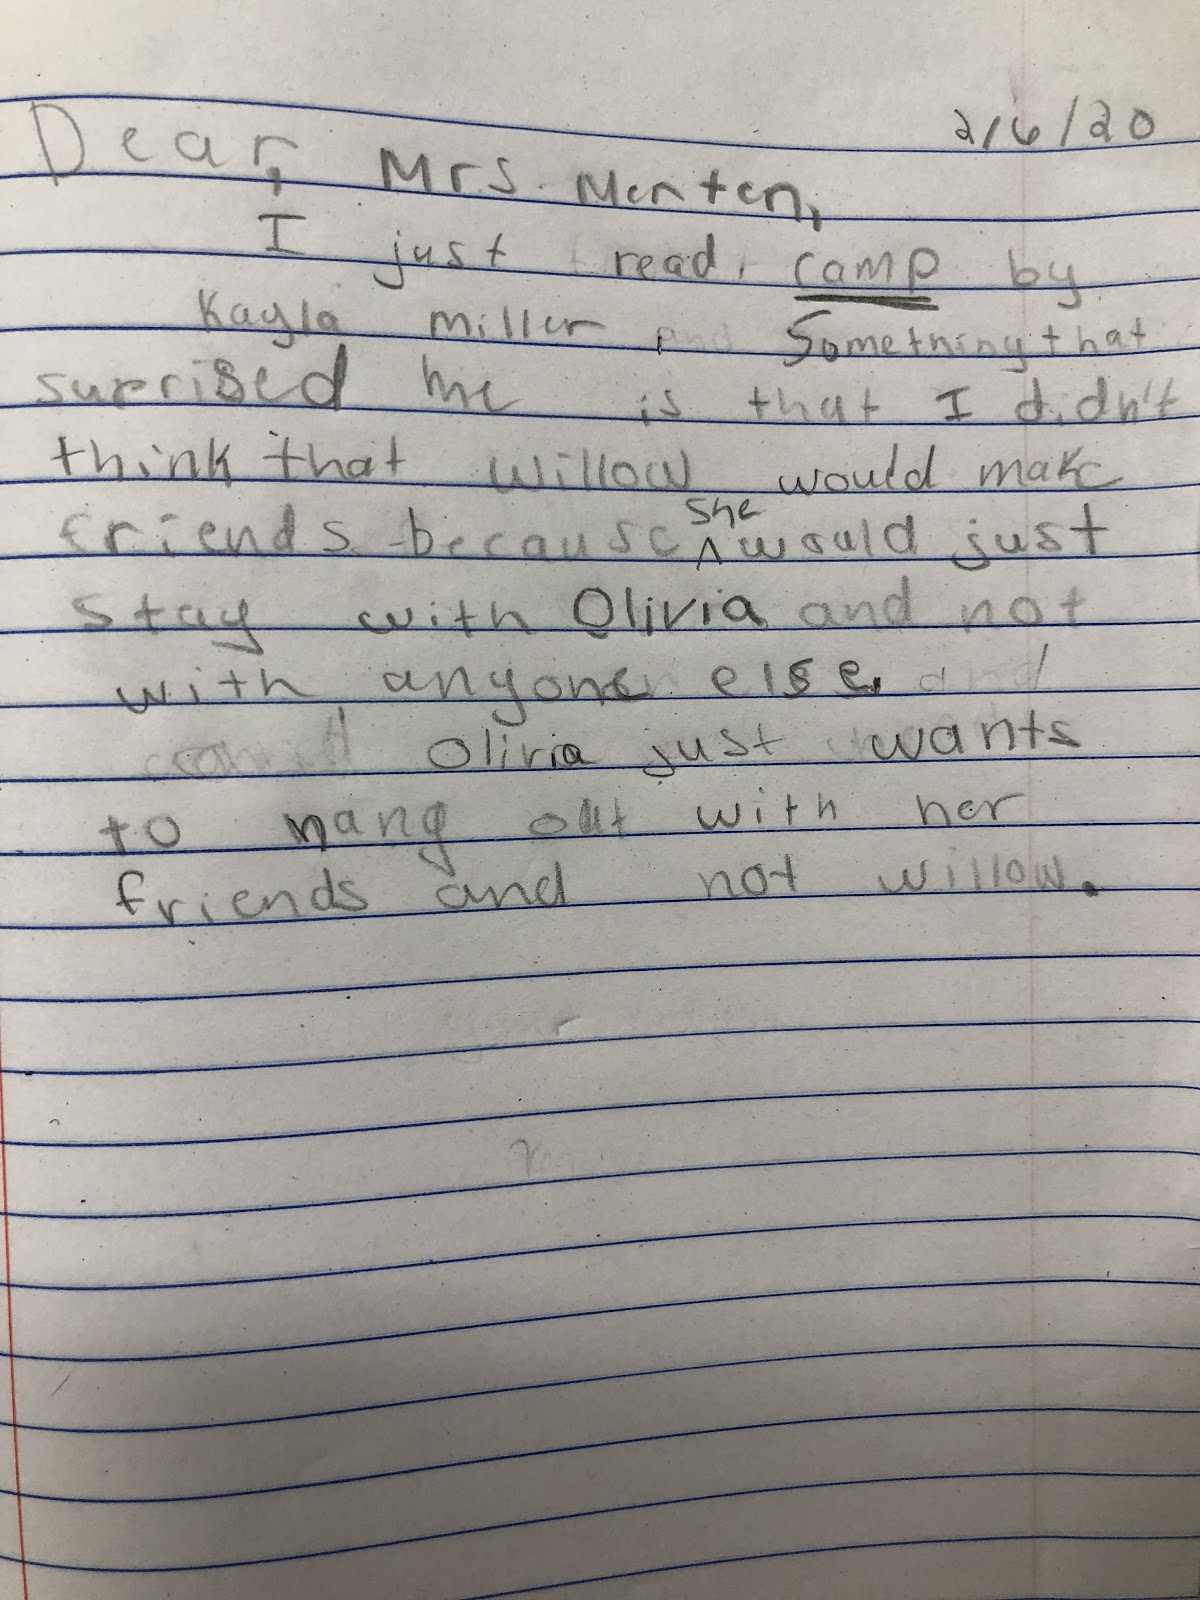 2/6/20
Dear, Mrs. Menten,
I just read, camp by
Kayla miller Something that
surprised me is that I didn't
think that willow would make
friends because she would just
stay with Olivia and not
with anyone else. and
Olivia just wants
to hang out with her
friends and not willow.